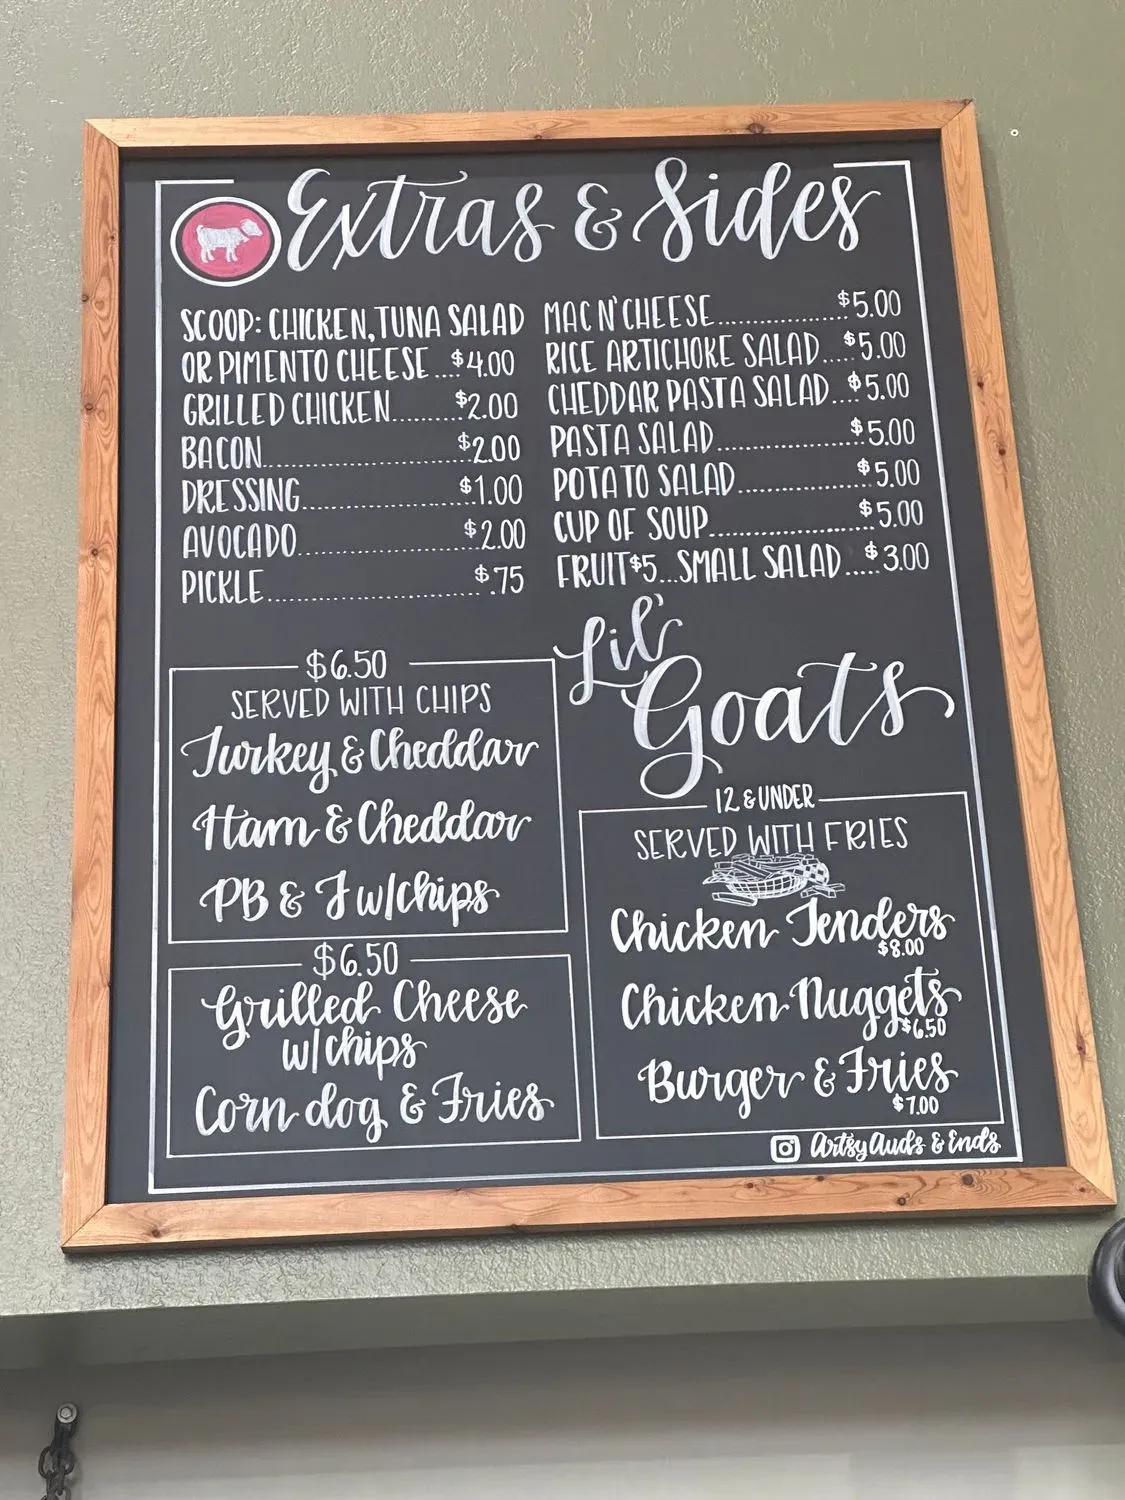 Extras & Sides
SCOOP: CHICKEN, TUNA SALAD
OR PIMENTO CHEESE...$4.00
GRILLED CHICKEN.........$2.00
BACON..............................$2.00
DRESSING.........................$1.00
AVOCADO..........................$2.00
PICKLE..............................$.75
MAC N' CHEESE..................$5.00
RICE ARTICHOKE SALAD....$5.00
CHEDDAR PASTA SALAD...$5.00
PASTA SALAD....................$5.00
POTATO SALAD.................$5.00
CUP OF SOUP.......................$5.00
FRUIT $5...SMALL SALAD.....$3.00
$6.50
SERVED WITH CHIPS
Turkey & Cheddar
Ham & Cheddar
PB & J w/chips
$6.50
Grilled Cheese
w/chips
Corn dog & Fries
Lil'
Goats
12 & UNDER
SERVED WITH FRIES
Chicken Tenders
$8.00
Chicken Nuggets
$6.50
Burger & Fries
$7.00
ArtsyAuds & Ends